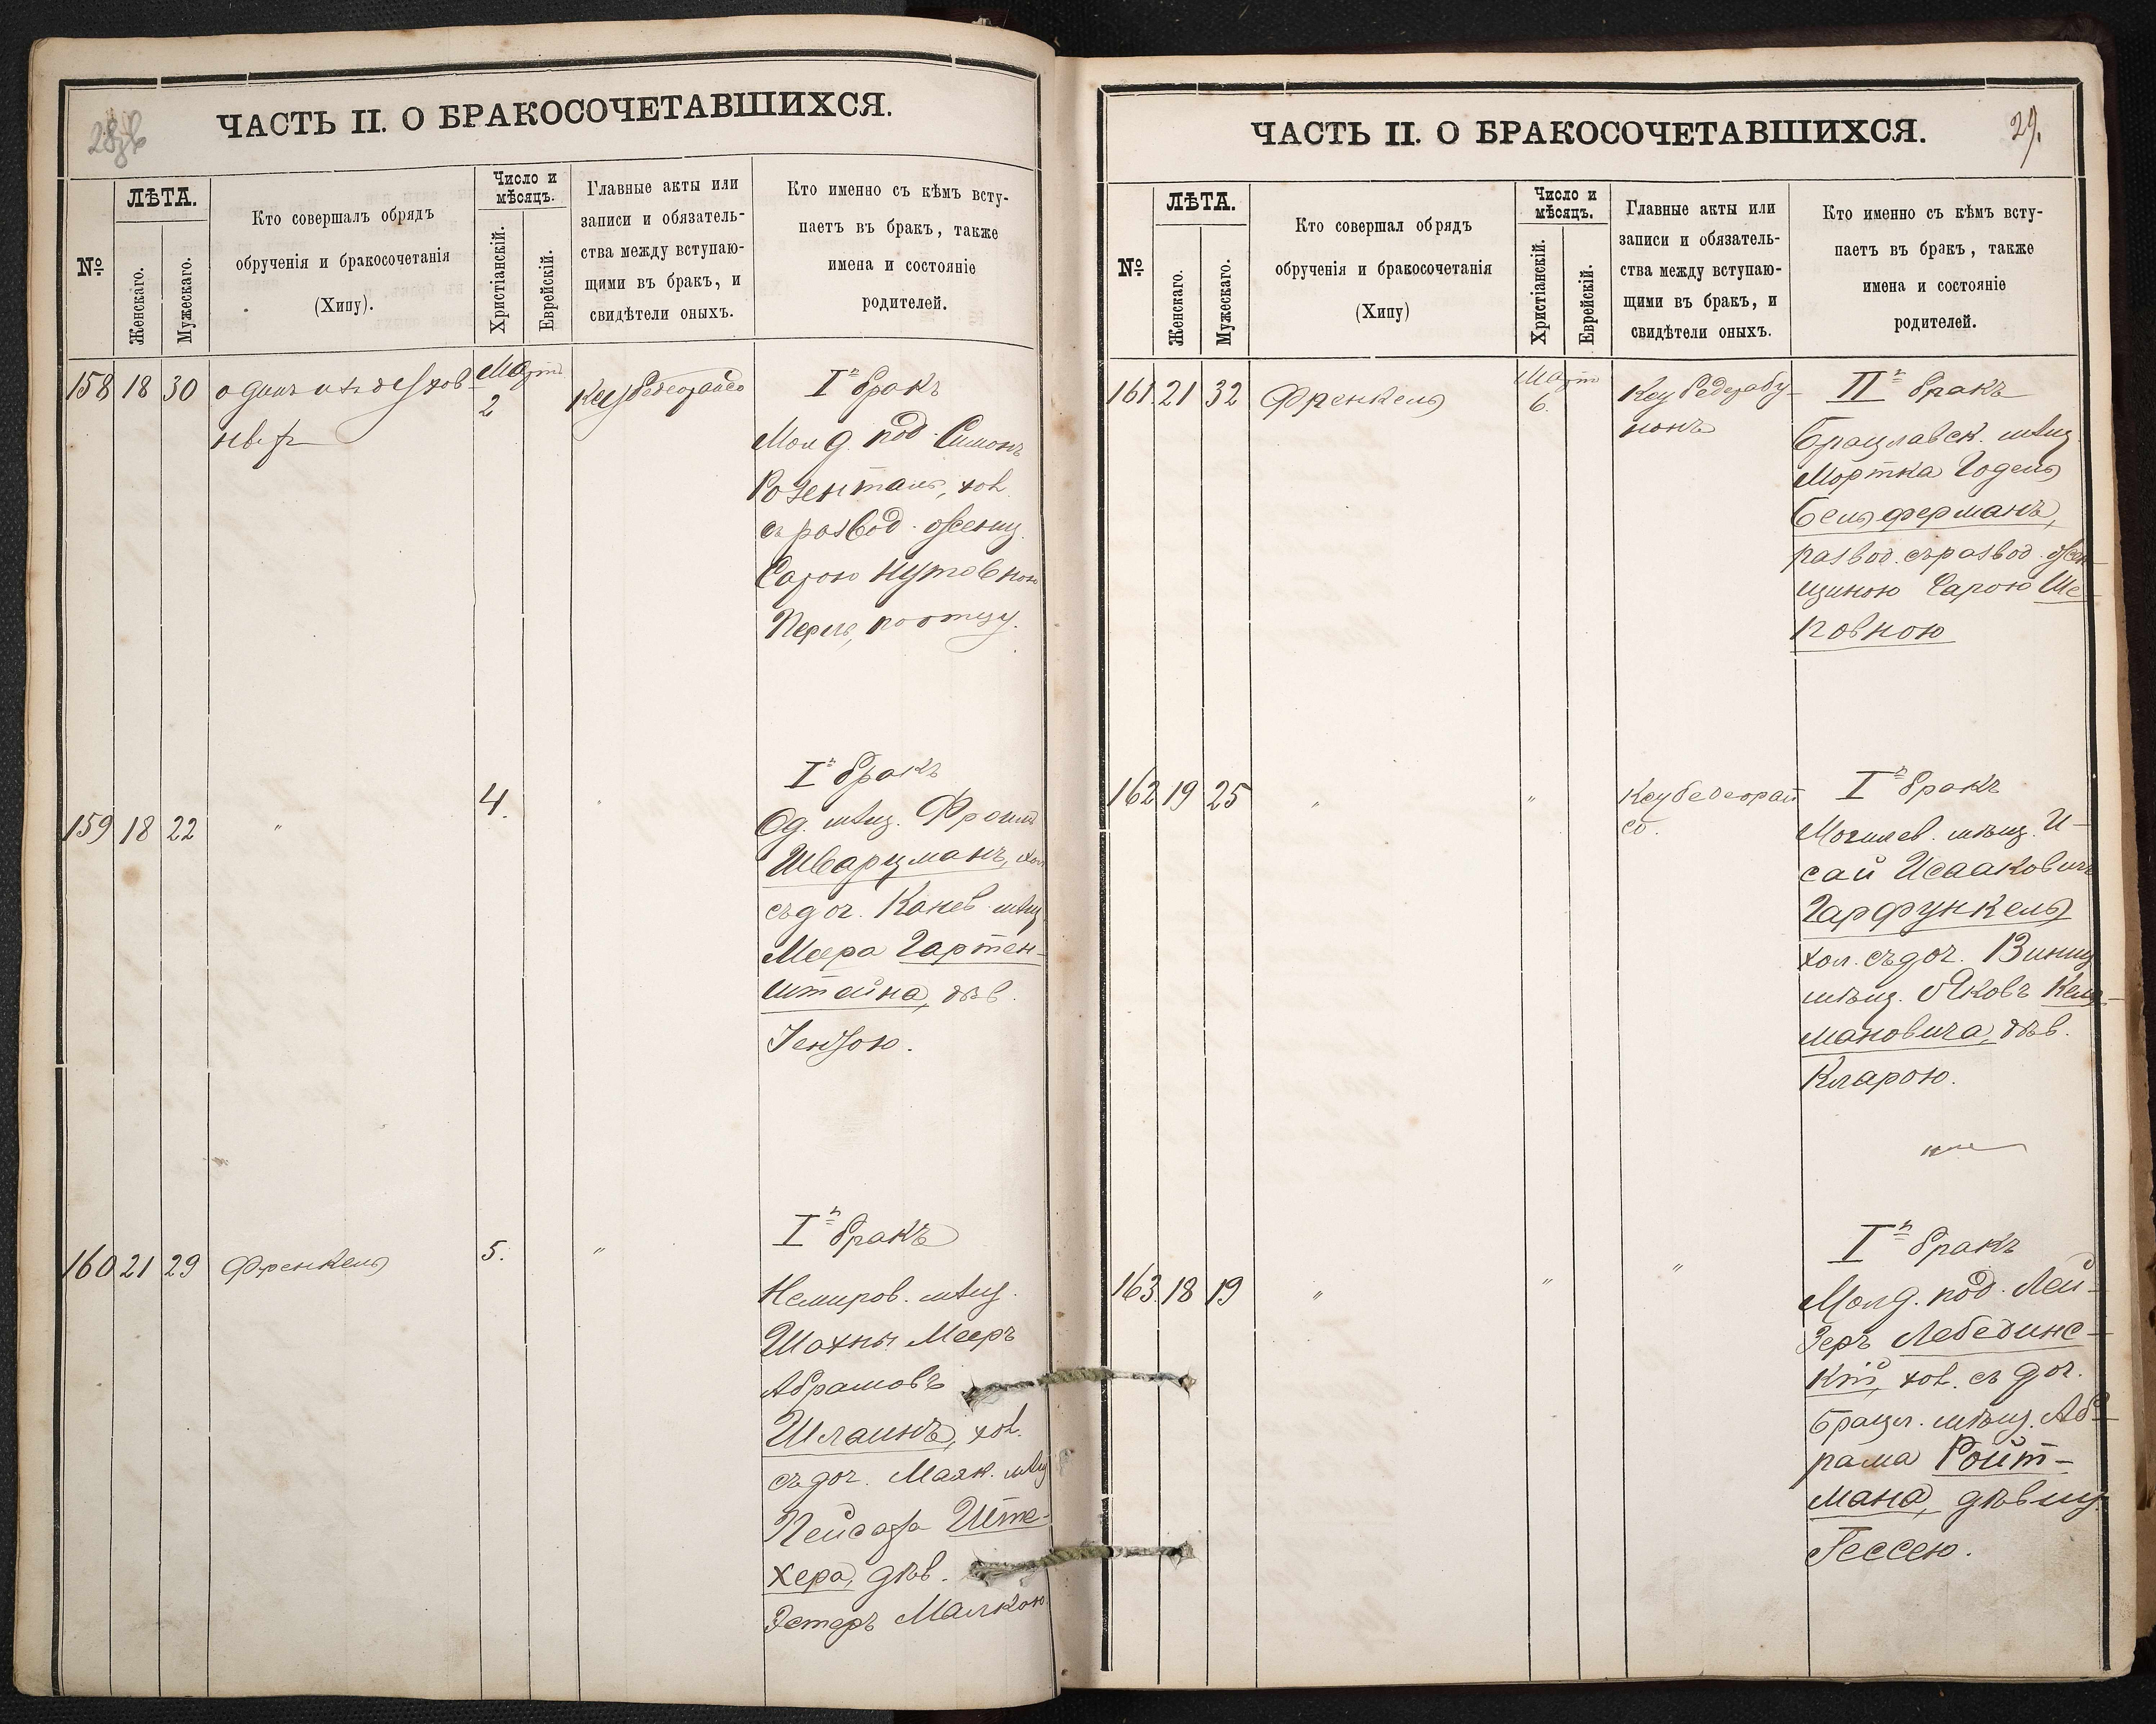 ЧАСТЬ II. О БРАКОСОЧЕТАВШИХСЯ.
№
ЛѢТА.
Женскаго.
Мужескаго.
Кто совершалъ обрядъ
обрученія и бракосочетанія
(Хипу).
Число и
мѣсяцъ.
Христіанскій.
Еврейскій.
Главные акты или
записи и обязатель-
ства между вступаю-
щими въ бракъ, и
свидѣтели оныхъ.
Кто именно съ кѣмъ всту-
паетъ въ бракъ, также
имена и состояніе
родителей.
158 18 30
Март
2
Iй бракъ
Молд. под. Симонъ
Розенталь, хол.
съ развод. женщ.
Сарою Нутовною
Перль, по отцу.
159 18 22 " 4. "
Iй бракъ
Од. мѣщ. Фроим
Шварцманъ, хол
съ доч. Канев. мѣщ.
Меера Гартен-
штейна, дѣв.
Генею.
160 21 29 Френкель 5. "
Iй бракъ
Немиров. мѣщ.
Шахны Мееръ
Абрамовъ
Шлаинъ, хол.
съ доч. Маяк. мѣщ
Пейсаха Ште-
хера, дѣв.
Эстеръ Малкою
ЧАСТЬ II. О БРАКОСОЧЕТАВШИХСЯ.
29.
№
ЛѢТА.
Женскаго.
Мужескаго.
Кто совершал обрядъ
обрученія и бракосочетанія
(Хипу)
Число и
мѣсяцъ.
Христіанскій.
Еврейскій.
Главные акты или
записи и обязатель-
ства между вступаю-
щими въ бракъ, и
свидѣтели оныхъ.
Кто именно съ кѣмъ всту-
паетъ въ бракъ, также
имена и состояніе
родителей.
161. 21 32 Френкель
Март
6.
IIй бракъ
Брацлавск. мѣщ.
Мортка Годель
Бельферманъ,
развод. съ развод. жен-
щиною Сарою Ше-
ровною
162 19 25 " "
Iй бракъ
Могилев. мѣщ. И-
сай Исааковичъ
Гарфункель
хол. съ доч. Винниц
мѣщ. Яковъ Кель-
мановича, дѣв.
Кларою.
163. 18 19 " " "
Iй бракъ
Молд. под. Лей-
зеръ Лебединс-
кій, хол. съ доч.
Брацл. мѣщ. Аб-
рама Ройт-
мана, дѣвиц.
Гессею.